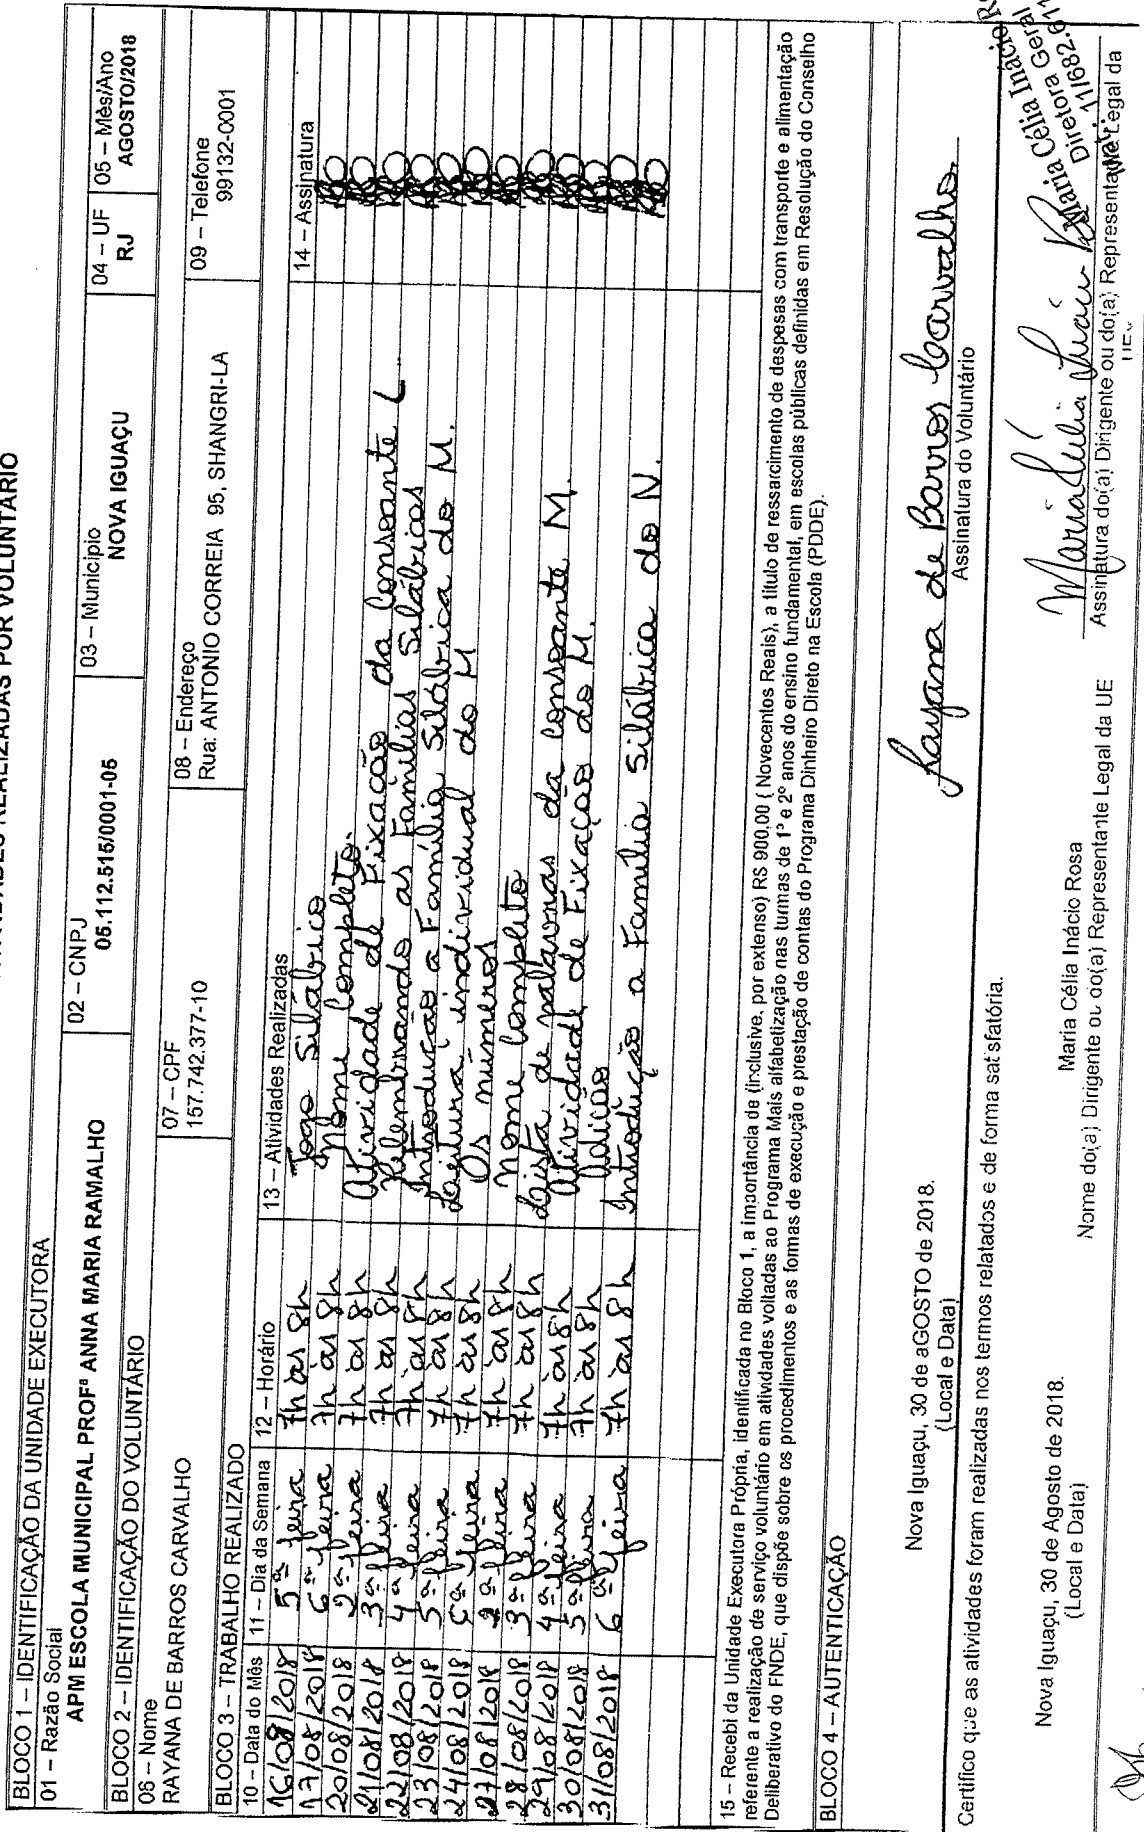 ATIVIDADES REALIZADAS POR VOLUNTÁRIO
BLOCO 1 – IDENTIFICAÇÃO DA UNIDADE EXECUTORA
01 – Razão Social
APM ESCOLA MUNICIPAL PROFª ANNA MARIA RAMALHO
02 – CNPJ
05.112.515/0001-05
03 – Município
NOVA IGUAÇU
04 – UF
RJ
05 – Mês/Ano
AGOSTO/2018
BLOCO 2 – IDENTIFICAÇÃO DO VOLUNTÁRIO
06 – Nome
RAYANA DE BARROS CARVALHO
07 – CPF
157.742.377-10
08 – Endereço
Rua: ANTONIO CORREIA 95, SHANGRI-LA
09 – Telefone
99132-0001
BLOCO 3 – TRABALHO REALIZADO
10 – Data do Mês 11 – Dia da Semana 12 – Horário 13 – Atividades Realizadas 14 – Assinatura
16/08/2018 5ª feira 7h às 8h Jogo Silábico
17/08/2018 6ª feira 7h às 8h Nome Completo.
20/08/2018 2ª feira 7h às 8h Atividade de Fixação da Consoante L
21/08/2018 3ª feira 7h às 8h Relembrando as Famílias Silábicas
22/08/2018 4ª feira 7h às 8h Introdução a Família Silábica do M.
23/08/2018 5ª feira 7h às 8h Leitura individual do M
24/08/2018 6ª feira 7h às 8h Os números
27/08/2018 2ª feira 7h às 8h Nome Completo
28/08/2018 3ª feira 7h às 8h Lista de palavras da consoante M.
29/08/2018 4ª feira 7h às 8h Atividade de Fixação do M.
30/08/2018 5ª feira 7h às 8h Adição
31/08/2018 6ª feira 7h às 8h Introdução a Família Silábica do N.
15 – Recebi da Unidade Executora Própria, identificada no Bloco 1, a importância de (inclusive, por extenso) R$ 900,00 ( Novecentos Reais), a título de ressarcimento de despesas com transporte e alimentação
referente a realização de serviço voluntário em atividades voltadas ao Programa Mais alfabetização nas turmas de 1º e 2º anos do ensino fundamental, em escolas públicas definidas em Resolução do Conselho
Deliberativo do FNDE, que dispõe sobre os procedimentos e as formas de execução e prestação de contas do Programa Dinheiro Direto na Escola (PDDE).
BLOCO 4 – AUTENTICAÇÃO
Nova Iguaçu, 30 de aGOSTO de 2018.
(Local e Data)
Rayana de Barros Carvalho
Assinatura do Voluntário
Certifico que as atividades foram realizadas nos termos relatados e de forma satisfatória.
Nova Iguaçu, 30 de Agosto de 2018.
(Local e Data)
Maria Célia Inácio Rosa
Nome do(a) Dirigente ou do(a) Representante Legal da UE
Maria Célia Inácio
Assinatura do(a) Dirigente ou do(a) Representante Legal da
UEx
Maria Célia Inácio
Diretora Geral
Matr. 11/682.611